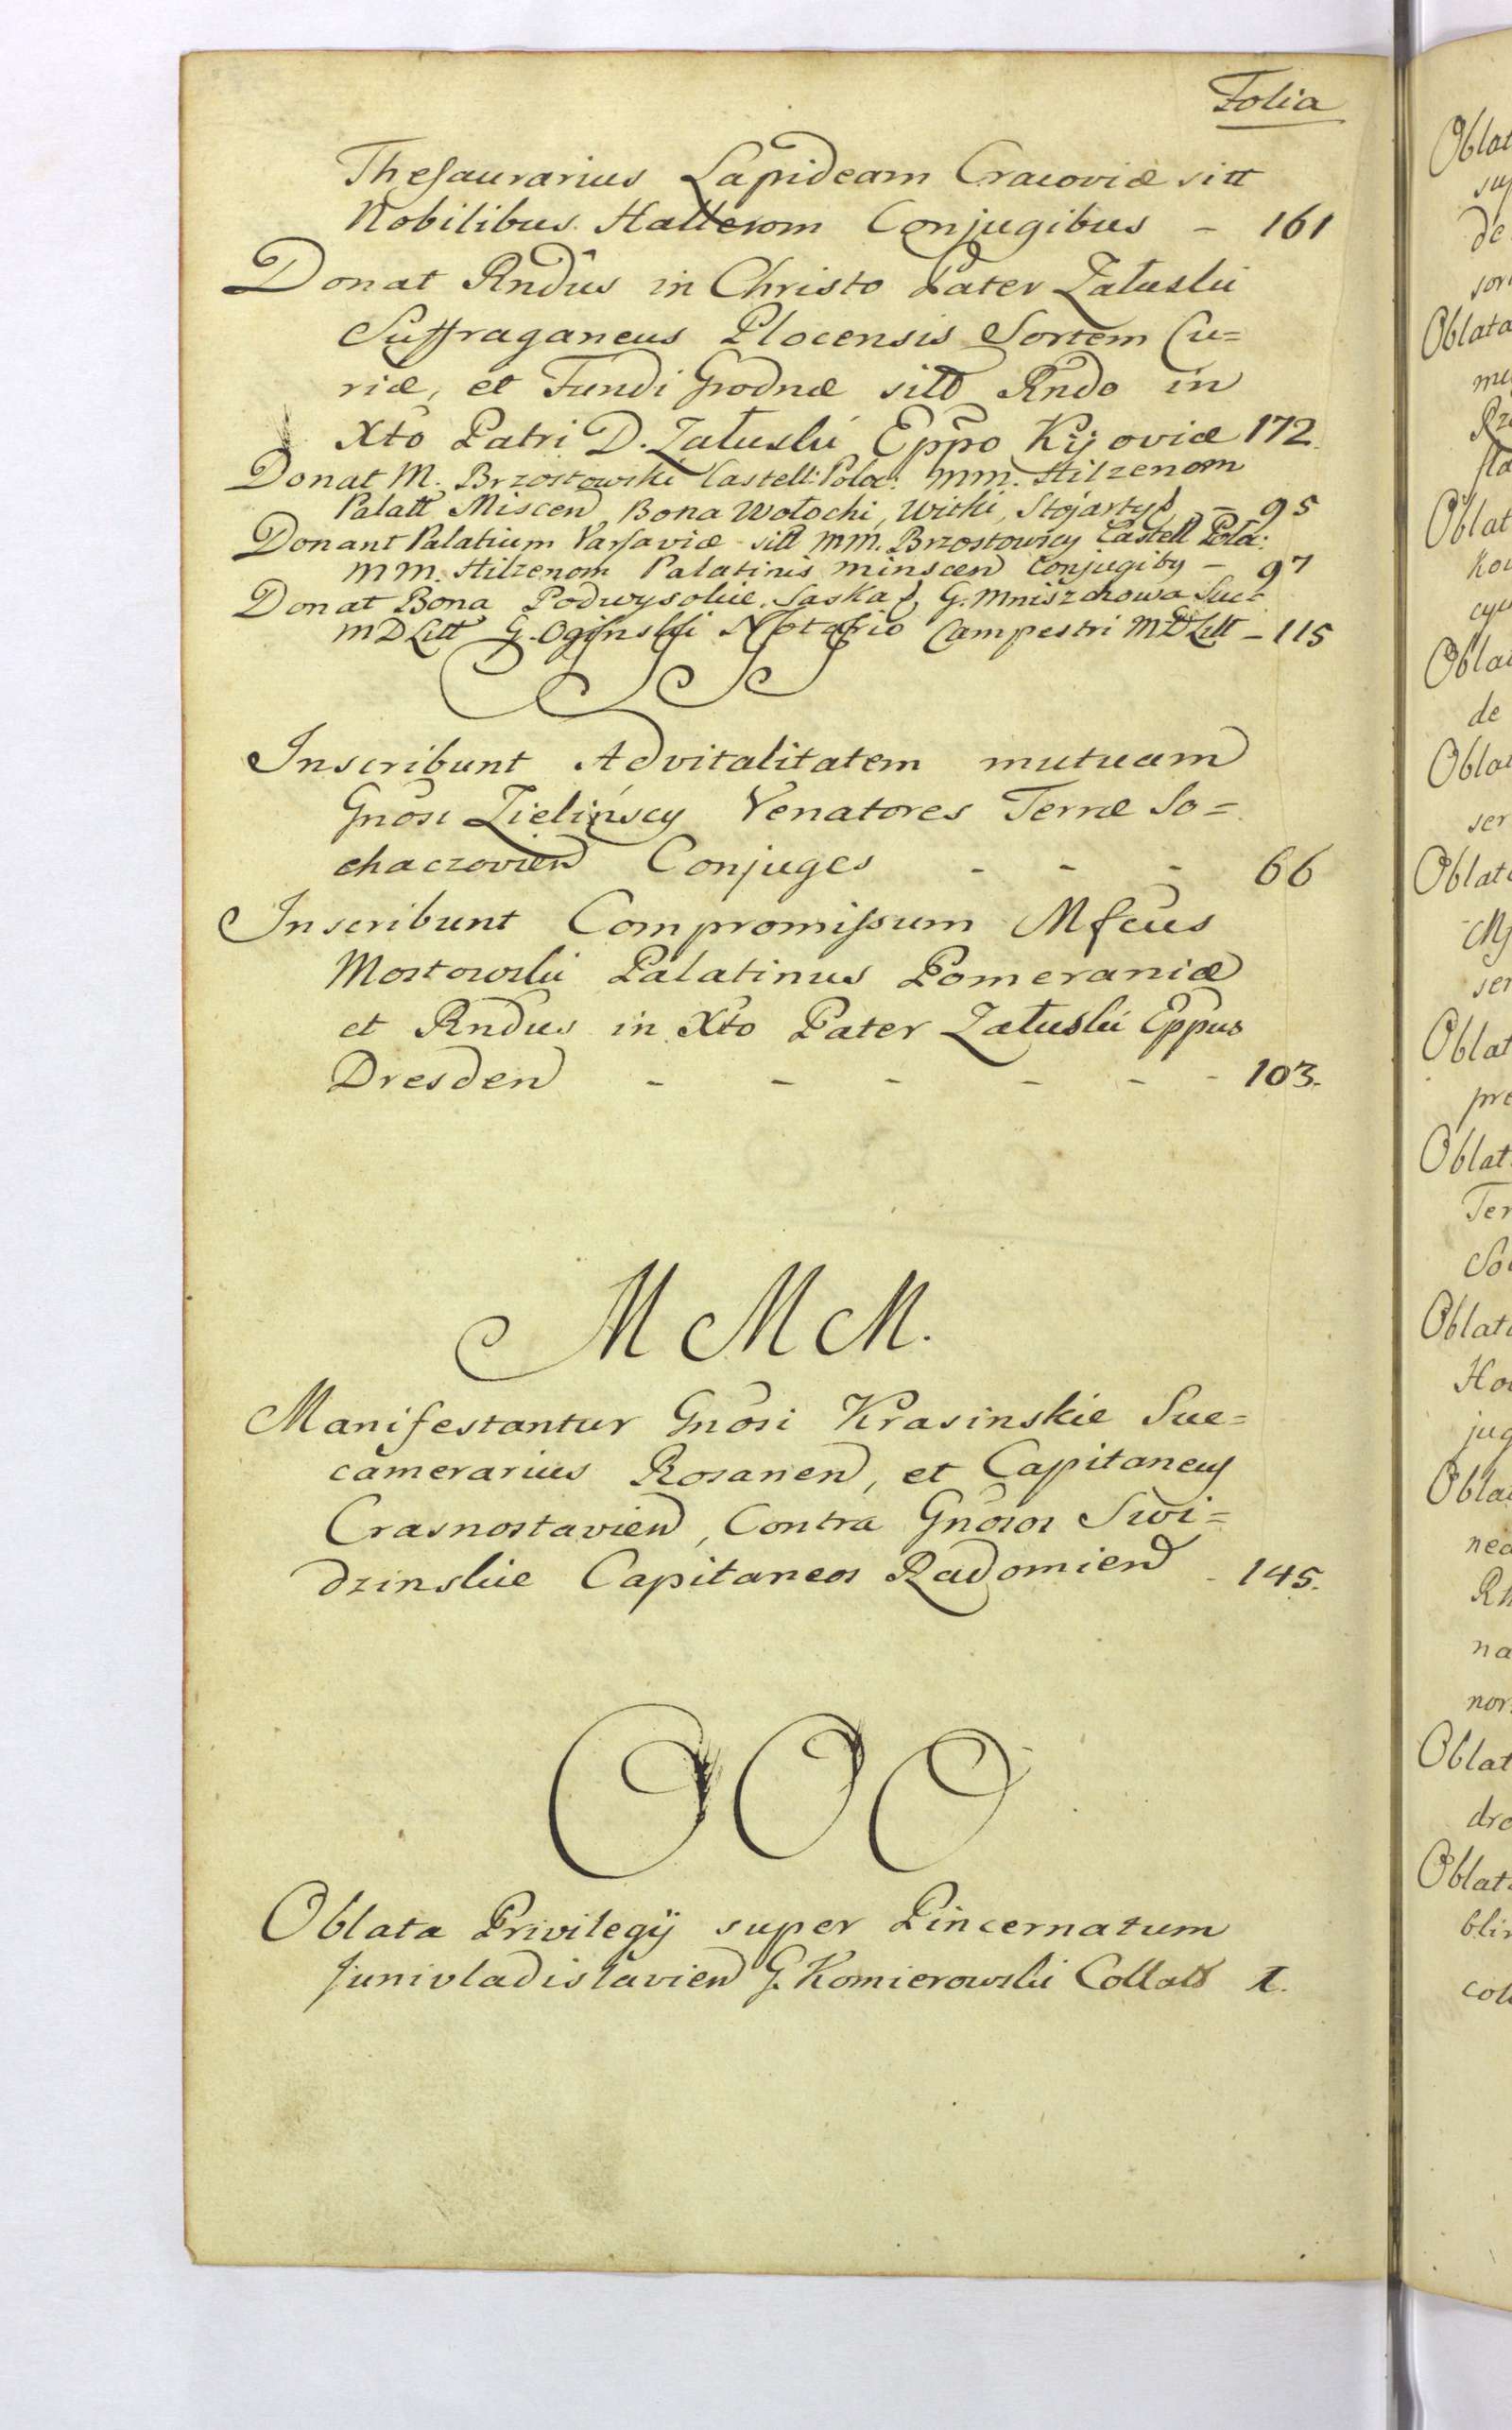 Folia
Thesaurarius Lapideam Cracoviæ sitt
Nobilibus Hallerom Conjugibus - 161
Donat Rndus in Christo Pater Załuski
Suffraganeus Plocensis Sortem Cu=
riæ, et Fundi Grodnæ sitt Rndo in
Xto Patri D. Załuski Eppo Kijoviæ 172.
Donat M. Brzostowski Castell: Pola: MM. Hilzenom
Palatt Miscen Bona Wołochi, Witki, - 95
Donant Palatium Varsaviæ sitt MM. Brzostowscy Castell Pola:
MM. Hilzenom Palatinis minscen Conjugiby - 97
Donat Bona Podwysokie, Saska G. Mniszchowa Suc=
MDLitt G. Ogiński Notario Campestri MDLitt - 115
JJJ
Inscribunt Advitalitatem mutuam
Gnosi Zielińscy Venatores Terræ So=
chaczovien Conjuges - - - 66
Inscribunt Compromissum Mfcus
Mostowski Palatinus Pomeraniæ
et Rndus in Xto Pater Załuski Eppus
Dresden - - - - - - 103.
MMM.
Manifestantur Gnosi Krasinskie Suc=
camerarius Rosanen, et Capitaneus
Crasnostavien, Contra Gnosos Swi=
dzinskie Capitaneos Radomien - 145.
OOO
Oblata Privilegÿ super Pincernatum
Junivladislavien G. Komierowski Collat 1.
Oblat
sup
de
Oblata
Oblat
Kow
Oblat
de
Oblat
ser
Oblata
ser
Oblat
pre
Oblat
Ter
So
Oblata
How
jug
Oblat
nea
Rh
na
nor
Oblat
dro
Oblat
blin
coll